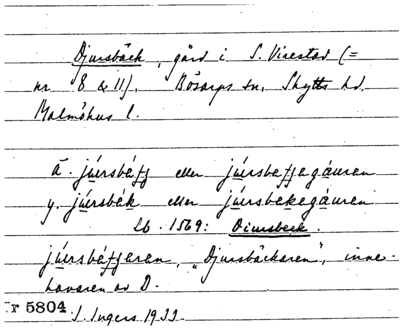 Djursbäck, gård i S. Virestad (=
nr 8 & 11). Bösarps sn. Skytts hd.
Malmöhus l.
ä. júrsbéʃʃ eller júrsbeʃʃegåuren
y. júrsbék eller júrsbekegåuren
Lb. 1569: Diursbeck.
júrsbéʃʃaren, "Djursbäckaren", inne-
havaren av D.
r 5804
I. Ingers 1933.